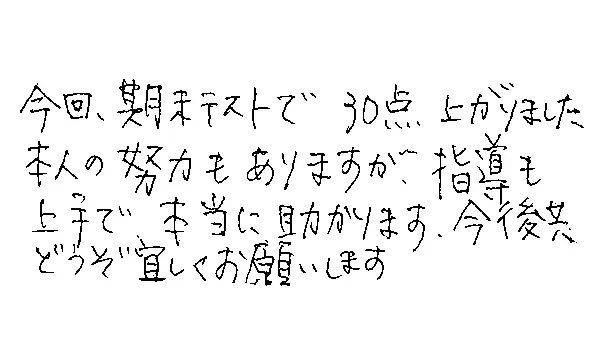 今回、期末テストで 30点 上がりました
本人の努力もありますが、指導も
上手で、本当に助かります。今後共
どうぞ宜しくお願いします